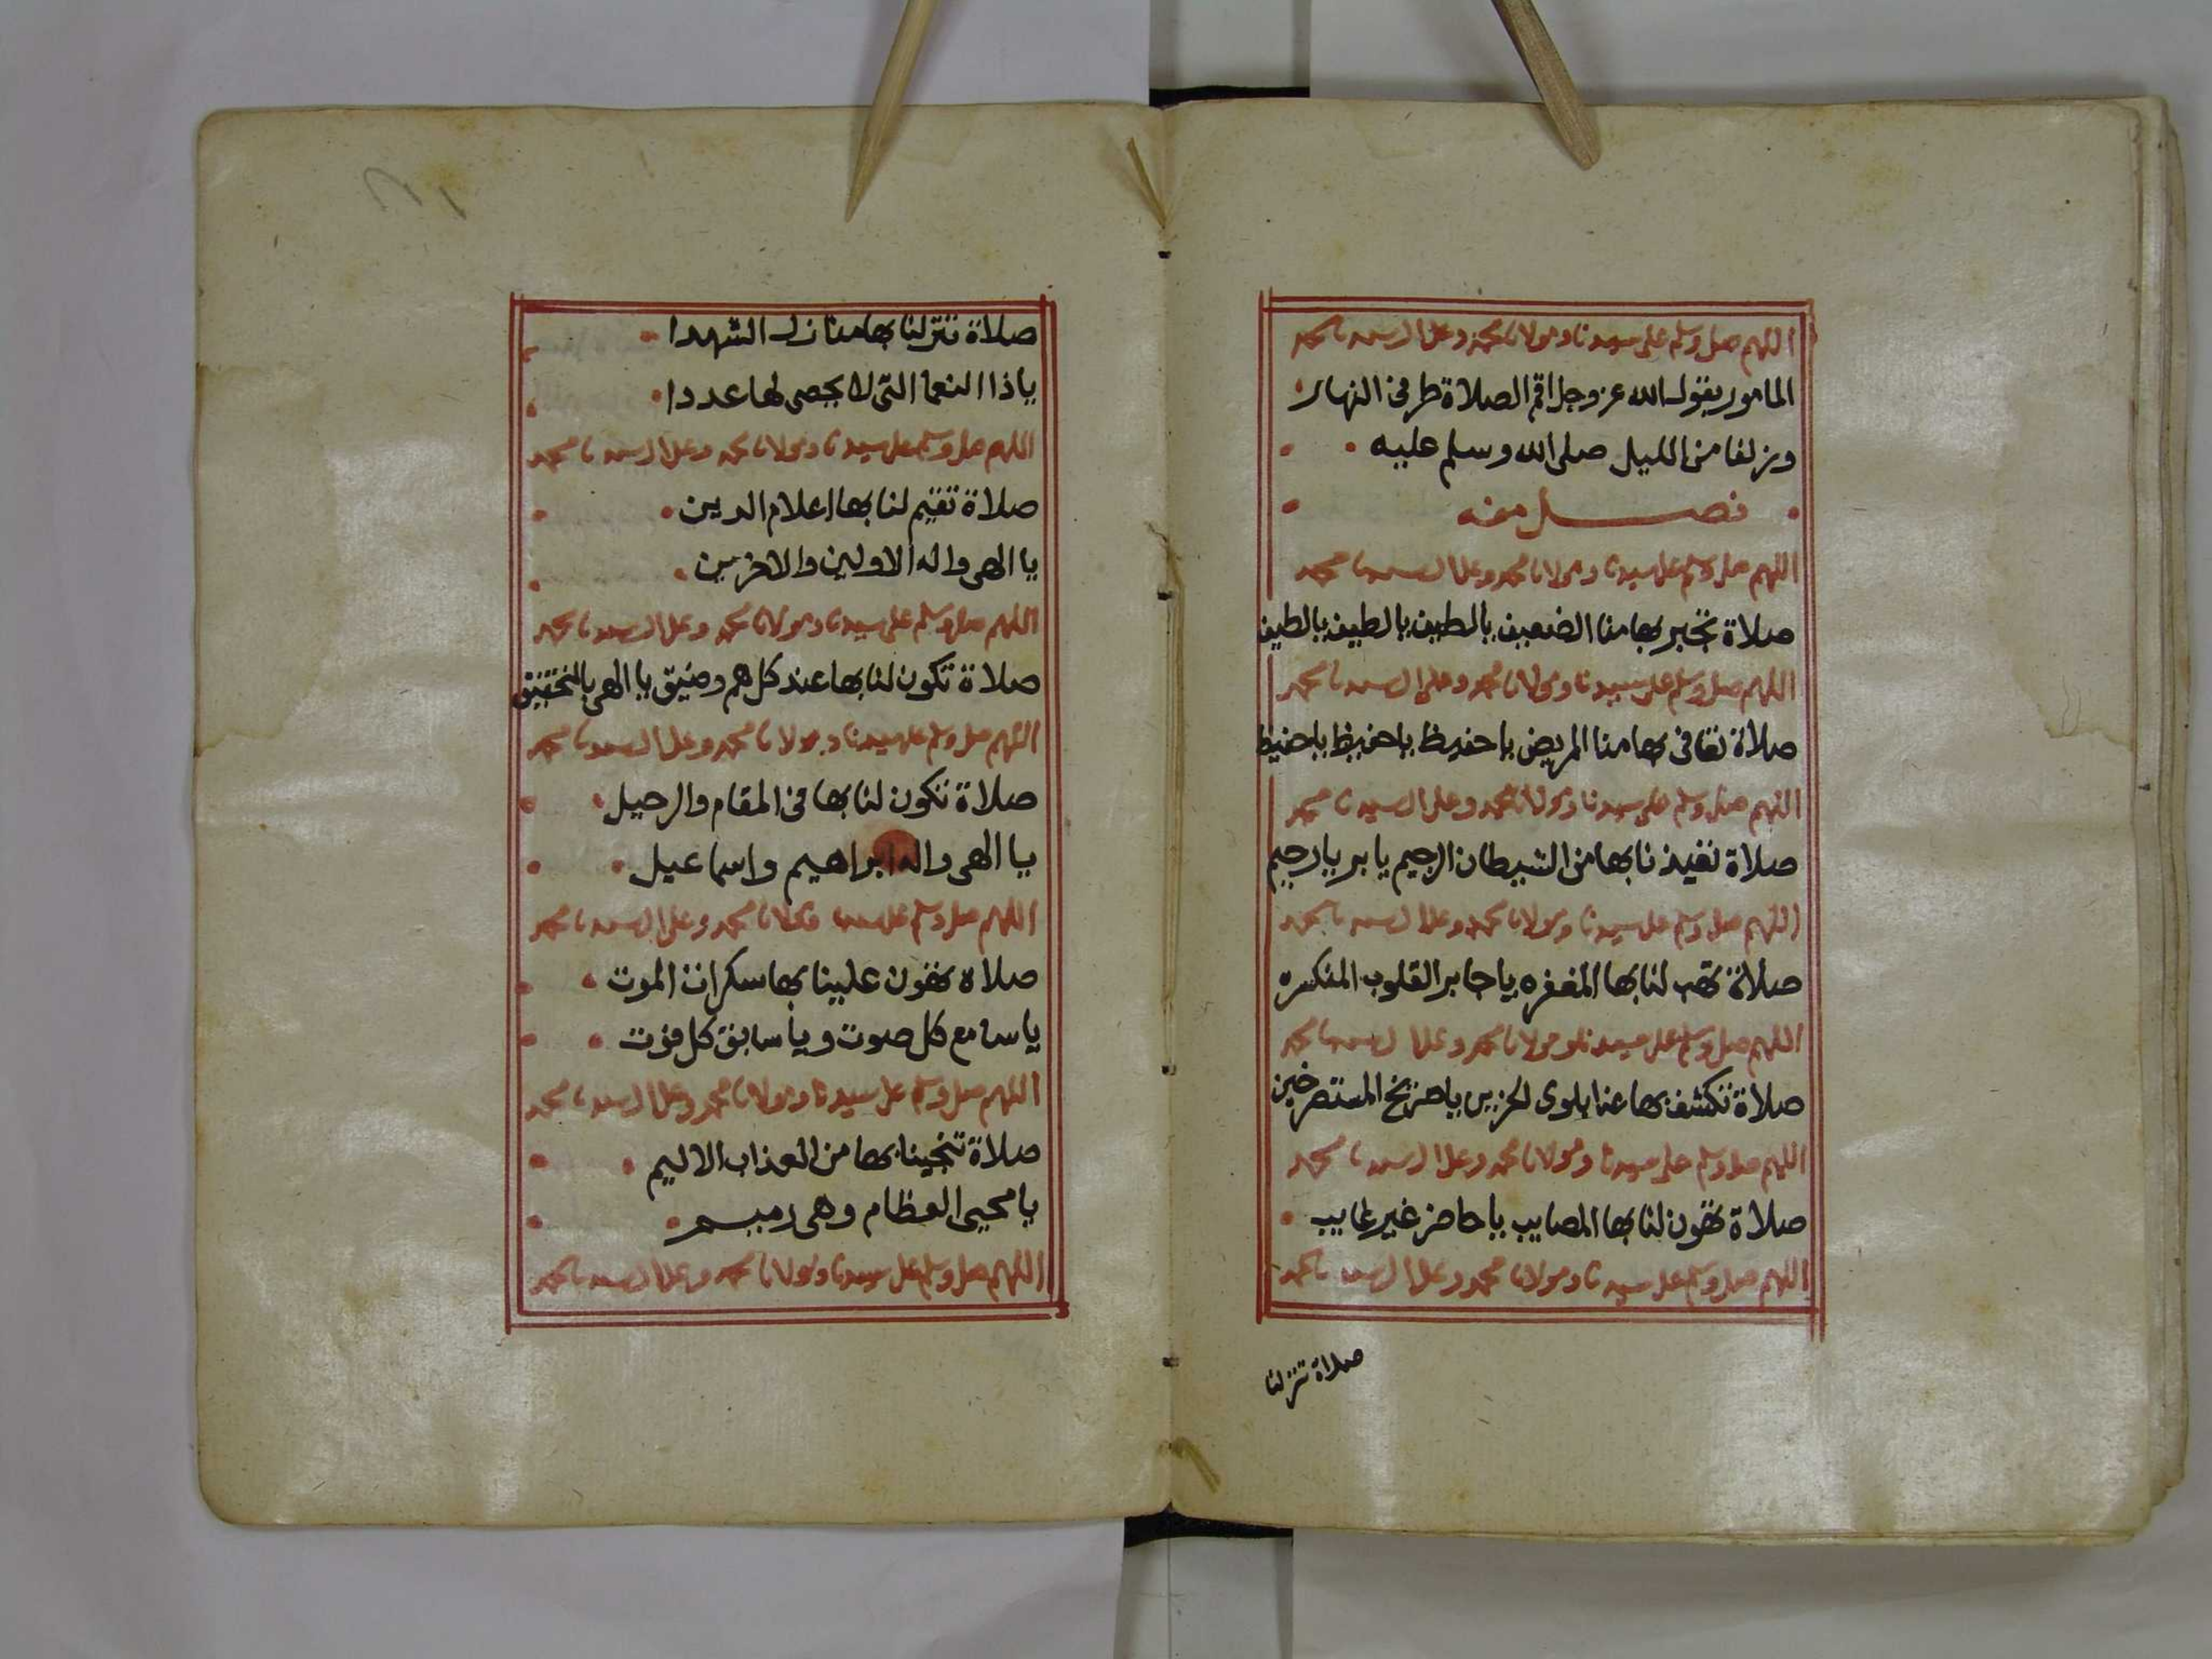 اللهم صل وسلم على سيدنا ومولانا محمد وعلى ال سيدنا محمد
المامور بقول الله عز وجل اقم الصلاة طرفي النهار
وزلفا من الليل صلى الله وسلم عليه
فصل منه
اللهم صل وسلم على سيدنا ومولانا محمد وعلى ال سيدنا محمد
صلاة تجبر بها منا الضعيف يالطيف يالطيف يالطيف
اللهم صل وسلم على سيدنا ومولانا محمد وعلى ال سيدنا محمد
صلاة تعافى بها منا المريض ياحفيظ ياحفيظ ياحفيظ
اللهم صل وسلم على سيدنا ومولانا محمد وعلى ال سيدنا محمد
صلاة تعيذنا بها من الشيطان الرجيم يابر يارحيم
اللهم صل وسلم على سيدنا ومولانا محمد وعلى ال سيدنا محمد
صلاة تهب لنا بها المغفره ياجابر القلوب المنكسره
اللهم صل وسلم على سيدنا ومولانا محمد وعلى ال سيدنا محمد
صلاة تكشف بها عنا بلوى الحزين ياصريخ المستصرخين
اللهم صل وسلم على سيدنا ومولانا محمد وعلى ال سيدنا محمد
صلاة تهون لنا بها المصايب ياحاضر غير غايب
اللهم صل وسلم على سيدنا ومولانا محمد وعلى ال سيدنا محمد
صلاة تنزلنا
صلاة تنزلنا بها منازل الشهدا
ياذا النعما التى لا يحصى لها عددا
اللهم صل وسلم على سيدنا ومولانا محمد وعلى ال سيدنا محمد
صلاة تقيم لنا بها اعلام الدين
يا الهى واله الاولين والاخرين
اللهم صل وسلم على سيدنا ومولانا محمد وعلى ال سيدنا محمد
صلاة تكون لنا بها عند كل هم وضيق يا الهى بالتحقيق
اللهم صل وسلم على سيدنا ومولانا محمد وعلى ال سيدنا محمد
صلاة تكون لنا بها فى المقام والرحيل
يا الهى واله ابراهيم واسماعيل
اللهم صل وسلم على سيدنا ومولانا محمد وعلى ال سيدنا محمد
صلاه تهون علينا بها سكرات الموت
ياسامع كل صوت وياسابق كل فوت
اللهم صل وسلم على سيدنا ومولانا محمد وعلى ال سيدنا محمد
صلاة تنجينا بها من العذاب الاليم
يامحيى العظام وهى رميم
اللهم صل وسلم على سيدنا ومولانا محمد وعلى ال سيدنا محمد